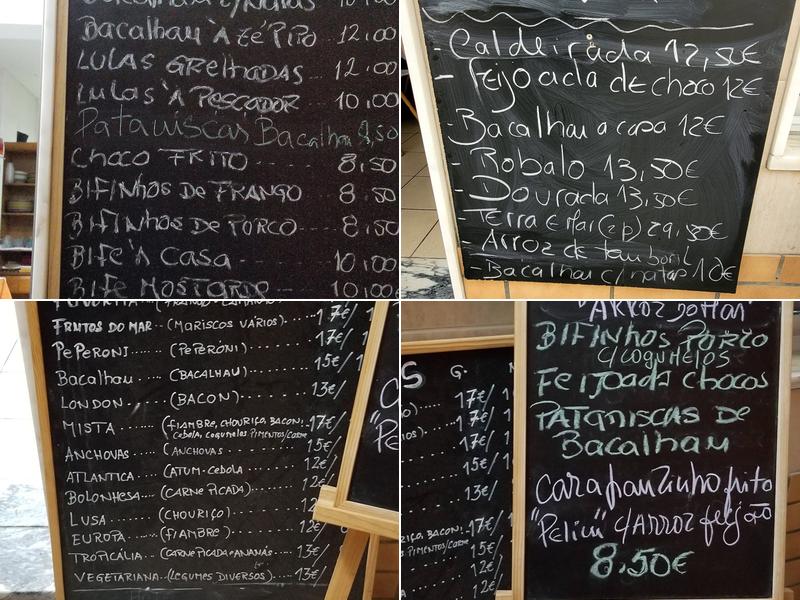 Bacalhau À Zé Pipo 12,00
Lulas Grelhadas ... 12,00
Lulas À Pescador .. 10,00
Pataniscas Bacalhau 8,50
Choco Frito ---- 8,50
Bifinhos de Frango 8,50
Bifinhos de Porco -- 8,50
Bife À Casa ---- 10,00
Bife Mostarda 10,00
- Caldeirada 12,50€
- Feijoada de choco 12€
- Bacalhau a casa 12€
- Robalo 13,50€
- Dourada 13,50€
- Terra e Mar (2p) 29,50€
- Arroz de tamboril
- Bacalhau c/ natas 10€
Frutos do Mar -- (Mariscos Vários) ..... 17€/
Peperoni ...... (Peperoni) ........ 17€/ 1
Bacalhau .... (Bacalhau) ....... 15€/ 1
London ...... (Bacon) ........ 13€/
Mista ...... (Fiambre, Chouriço, Bacon, 17€/
Cebola, Cogumelos Pimentos/Carne
Anchovas .... (Anchovas ....... 15€/
Atlantica .... (Atum-Cebola ...... 12€/
Bolonhesa.... (Carne Picada) ..... 12€/
Lusa ...... (Chouriço) ...... 12€
Europa ..... (Fiambre) ....... 12€
Tropicália.. (Carne Picada e Ananás) .. 13€/
Vegetariana.. (Legumes Diversos) .... 13€/
S G.
17€/ 1
17€/
17€/
15€/
13€/
riço, Bacon, 17€/
s Pimentos/Carne
15€
12€/
12€/
"Arroz do Mar"
Bifinhos Porco
c/Cogumelos
Feijoada chocos
Pataniscas de
Bacalhau
Carapauzinho frito
"Pelim" c/Arroz feijão
8,50€